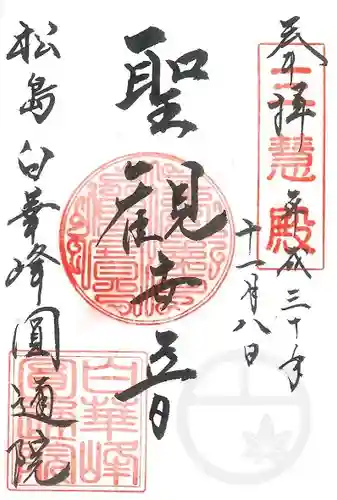 奉拝
平成三十年
十一月八日
聖観世音
松島 白華峰 圓通院
白華峰
圓通院